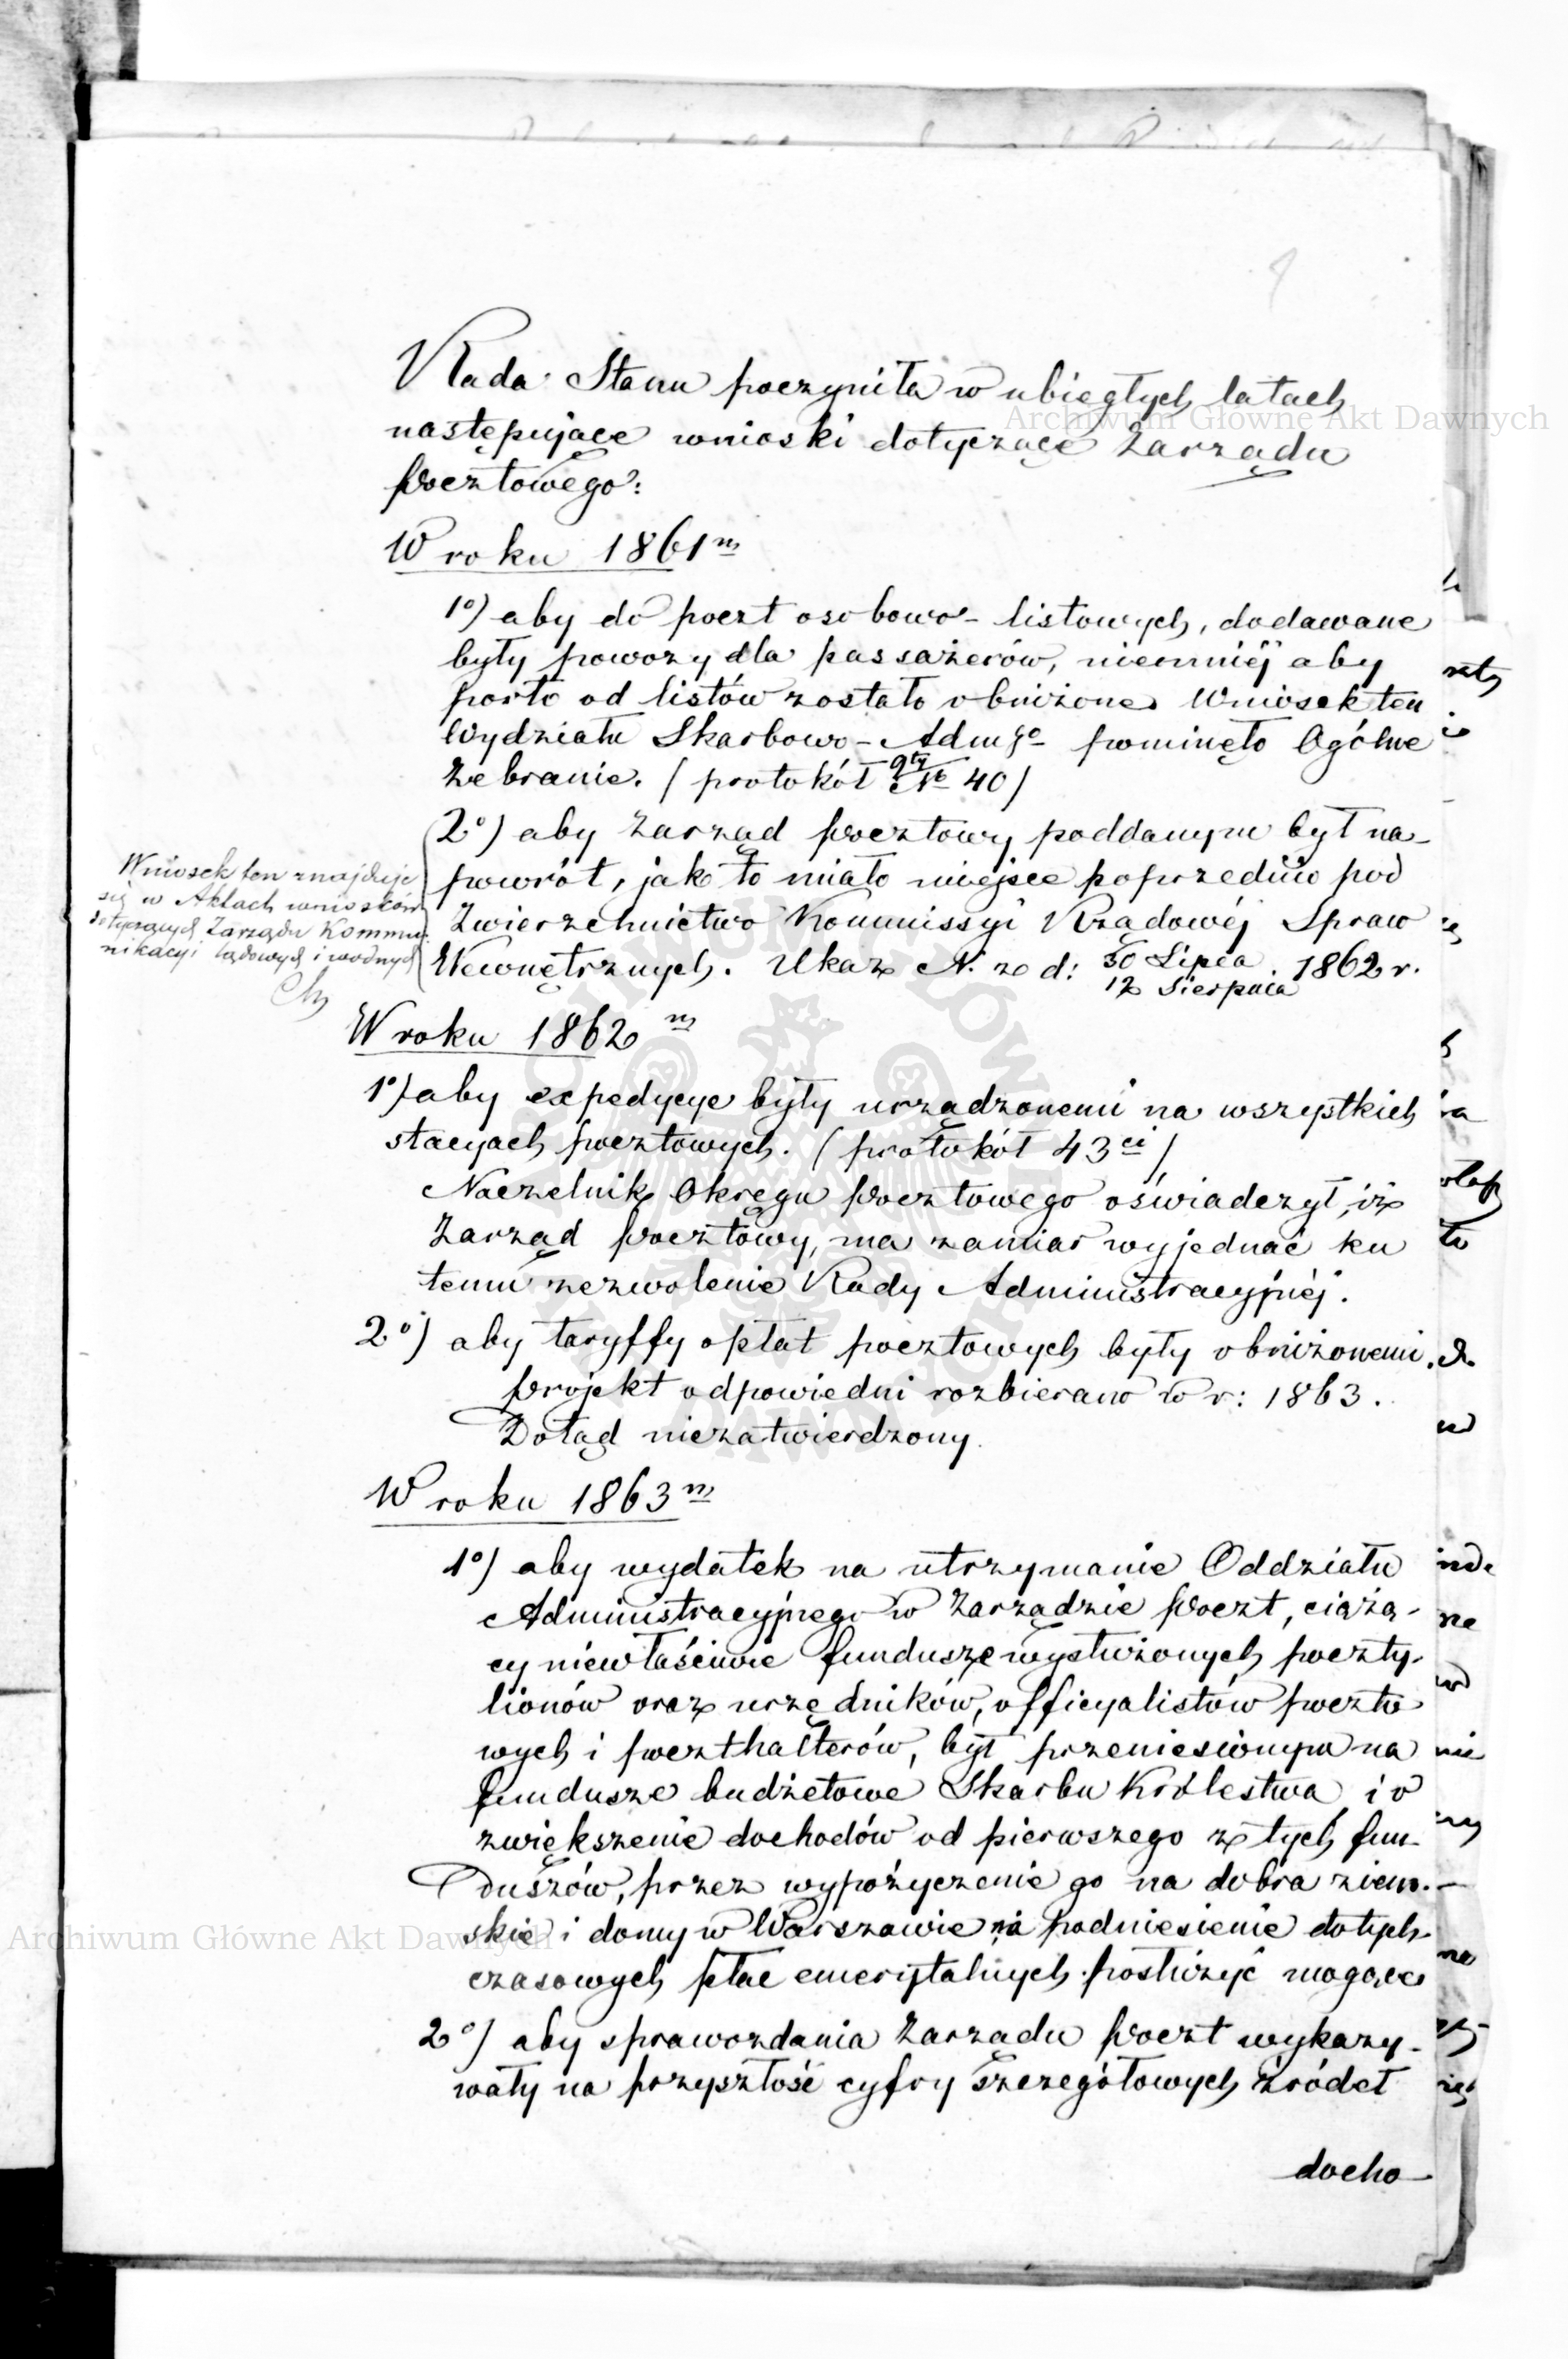 Rada Stanu poczyniła w ubiegłych latach
następujące wnioski dotyczące Zarządu
Pocztowego:
W roku 1861m
1o) aby do poczt osobowo-listowych, dodawane
były powozy dla passażerów, niemniéj aby
porto od listów zostało obniżone. Wniosek ten
Wydziału Skarbowo-Admgo pominęło Ogólne
Zebranie. (protokół gły No 40)
2o) aby Zarząd Pocztowy poddanym był na-
powrót, jak to miało miejsce poprzednio pod
Zwierzchnictwo Kommissyi Rządowéj Spraw
Wewnętrznych. Ukaz N. z d: 30 Lipca / 12 Sierpnia 1862 r.
Wniosek ten znajduje
się w Aktach wniosków
dotyczących Zarządu Kommu-
nikacyi lądowych i wodnych
W roku 1862m
1o) aby expedycye były urządzonemi na wszystkich
stacyach pocztowych. (protokół 43ci)
Naczelnik Okręgu Pocztowego oświadczył, iż
Zarząd Pocztowy, ma zamiar wyjednać ku
temu zezwolenie Rady Administracyjnéj.
2o) aby taryffy opłat pocztowych były obniżonemi.
Projekt odpowiedni rozbierano w r: 1863.
Dotąd niezatwierdzony.
W roku 1863m
1o) aby wydatek na utrzymanie Oddziału
Administracyjnego w Zarządzie Poczt, ciążą-
cy niewłaściwie fundusze wysłużonych poczty-
lionów oraz urzędników, officyalistów poczto
wych i poczthalterów, był przeniesionym na
fundusze budżetowe Skarbu Królestwa i o
zwiększenie dochodów od pierwszego z tych fun-
duszów, przez wypożyczenie go na dobra ziem-
skie i domy w Warszawie na podniesienie dotych-
czasowych płac emerytalnych posłużyć mogące
2o) aby sprawozdania Zarządu Poczt wykazy-
wały na przyszłość cyfry szczegółowych źródeł
docho-
Archiwum Główne Akt Dawnych
Archiwum Główne Akt Dawnych